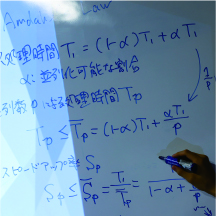 Amdahl
処理時間 T₁ = (1-α)T₁ + αT₁
α: 並列化可能な割合
列数 p による処理時間 Tp
1/p
Tp ≤ T̄p = (1-α)T₁ + αT₁/p
スピードアップ率 Sp
Sp ≤ S̄p = T₁/T̄p = /(1-α+ /p